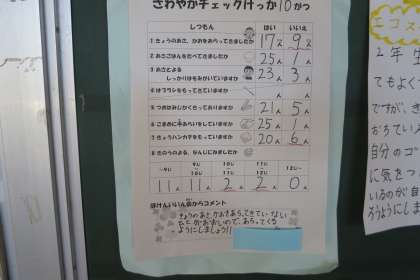 さわやかチェックけっか10がつ
しつもん はい いいえ
①きょうのあさ、かおをあらってきましたか 17人 9人
②あさごはんをたべてきましたか 25人 1人
③あさとよる
しっかりはをみがいていますか 23人 3人
④はブラシをもってきていますか
⑤つめはみじかくきってありますか 21人 5人
⑥こまめに手あらいをしていますか 25人 1人
⑦きょうハンカチをもっていますか 20人 6人
⑧きのうのよる、なんじにねましたか
~9じ 9じ~ 10じ~ 11じ~ 12じ~
11人 11人 2人 2人 0人
ほけんいいんかいからコメント
きょうのあと かおをあらってきていない
ひとがおおいので、あらってくる
ようにしましょう!!
ニコス
2年生
てもよく
ですが、さ
おちてい
自分のゴ
に気をつ
いるのが
ろうようにしま